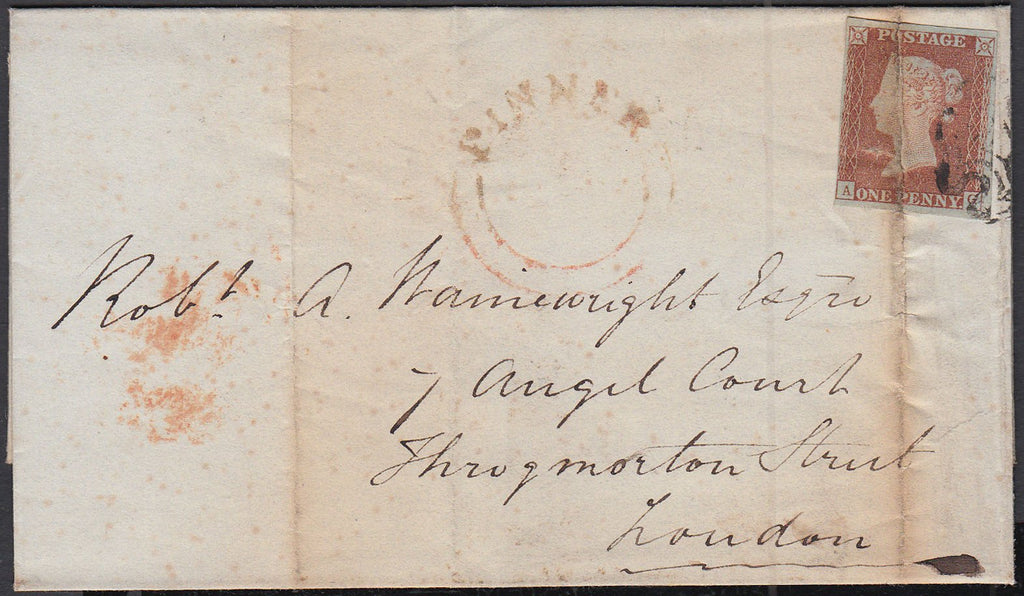 POSTAGE
A ONE PENNY.
PINNER
Robt. A. Wainewright Esqre
7 Angel Court
Throgmorton Street
London